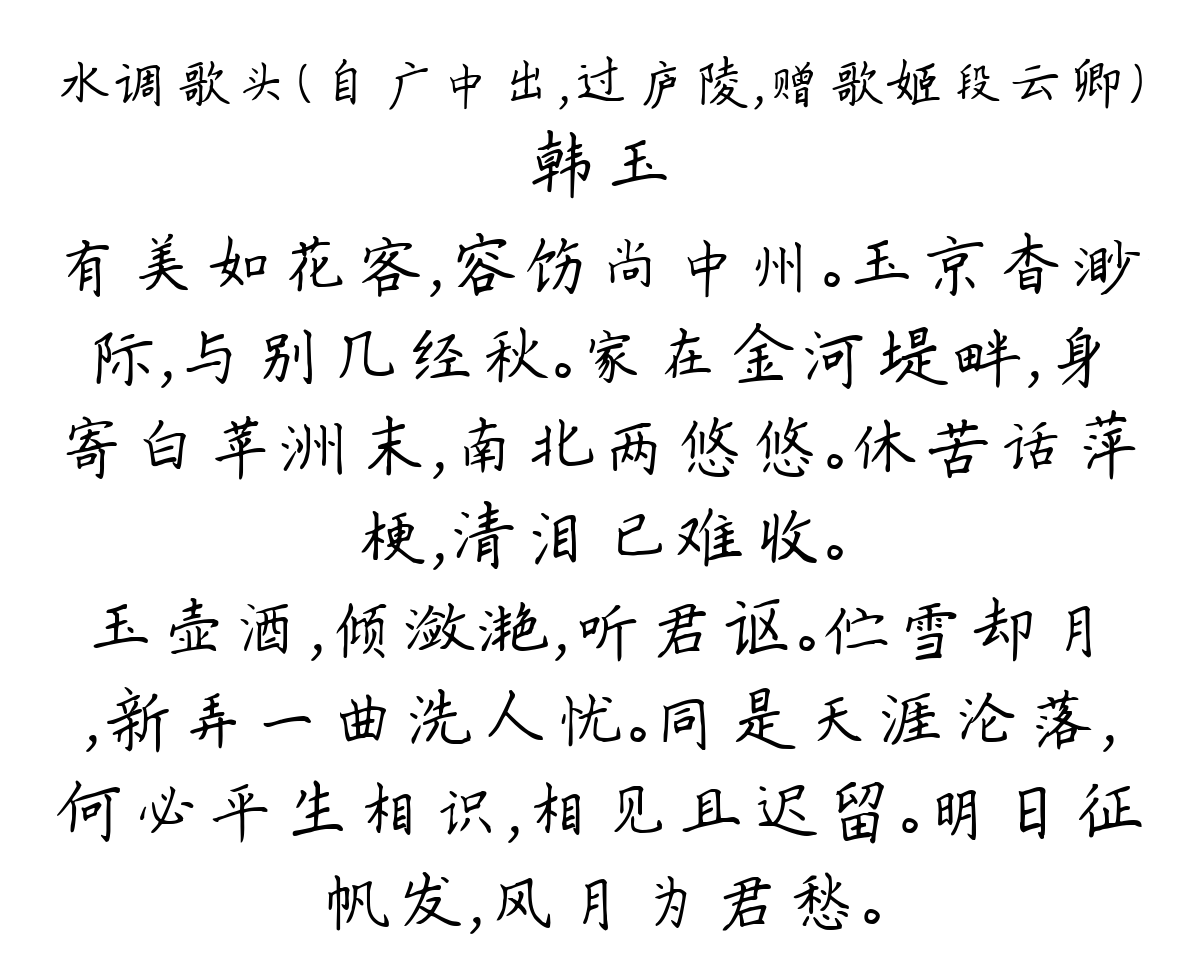 水调歌头(自广中出,过庐陵,赠歌姬段云卿)
韩玉
有美如花客,容饬尚中州。玉京杳渺
际,与别几经秋。家在金河堤畔,身
寄白苹洲末,南北两悠悠。休苦话萍
梗,清泪已难收。
玉壶酒,倾潋滟,听君讴。伫雪却月
,新弄一曲洗人忧。同是天涯沦落,
何必平生相识,相见且迟留。明日征
帆发,风月为君愁。